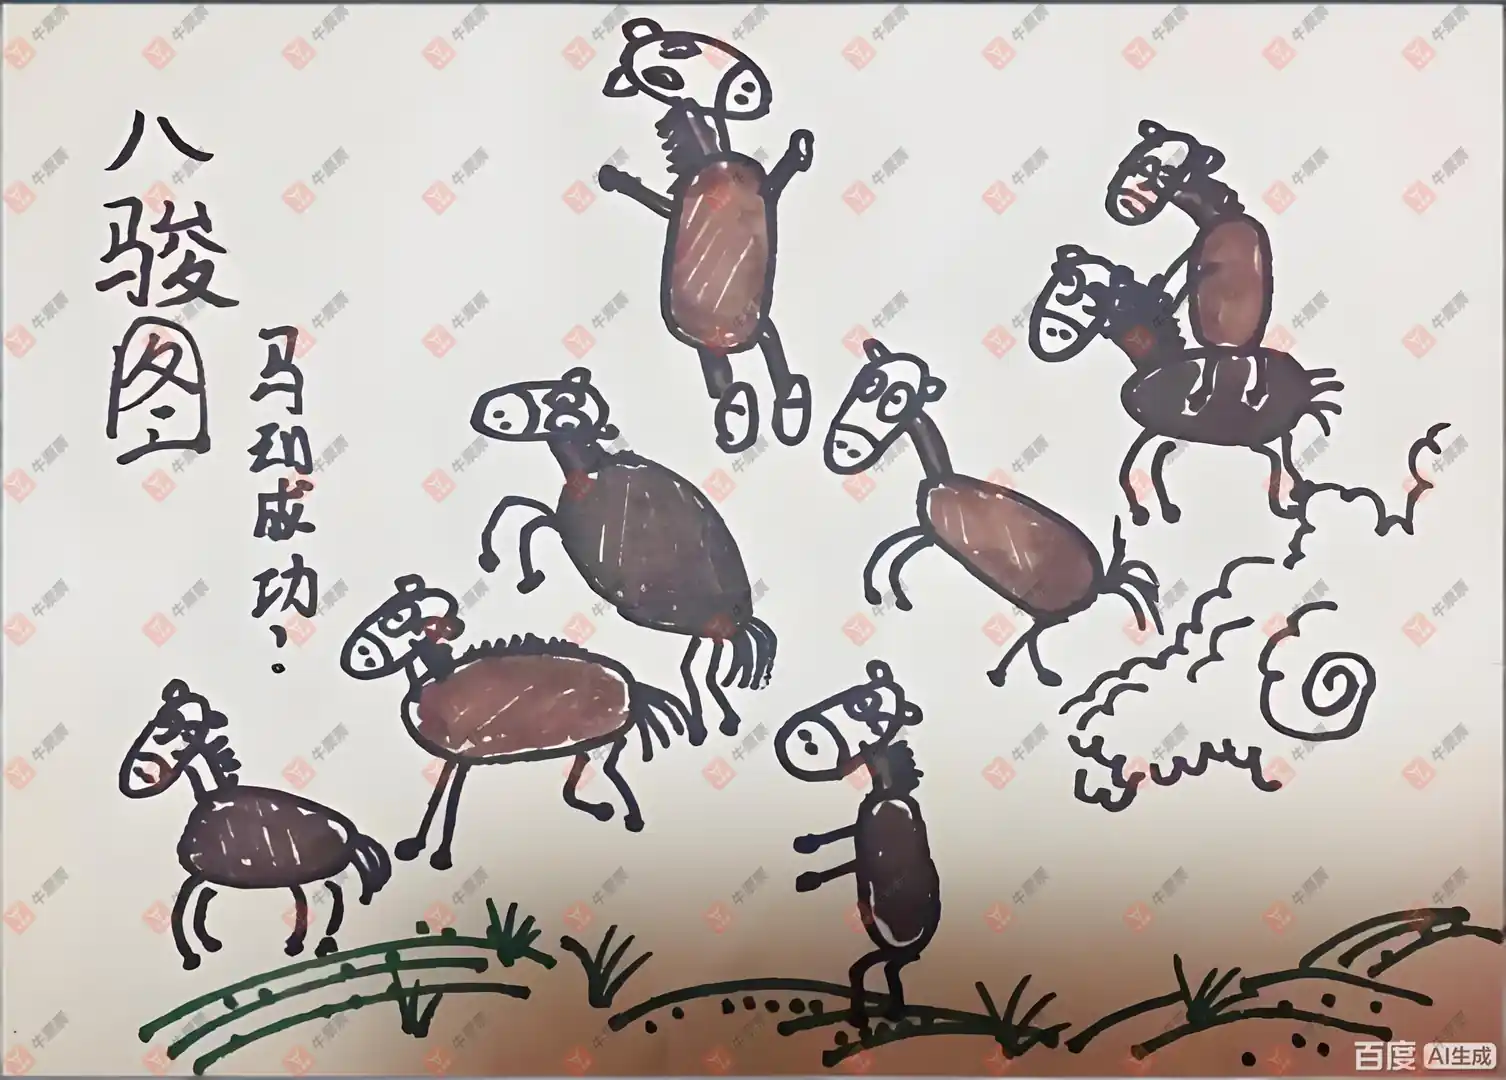 八骏图
马到成功！
牛票票
百度 AI生成